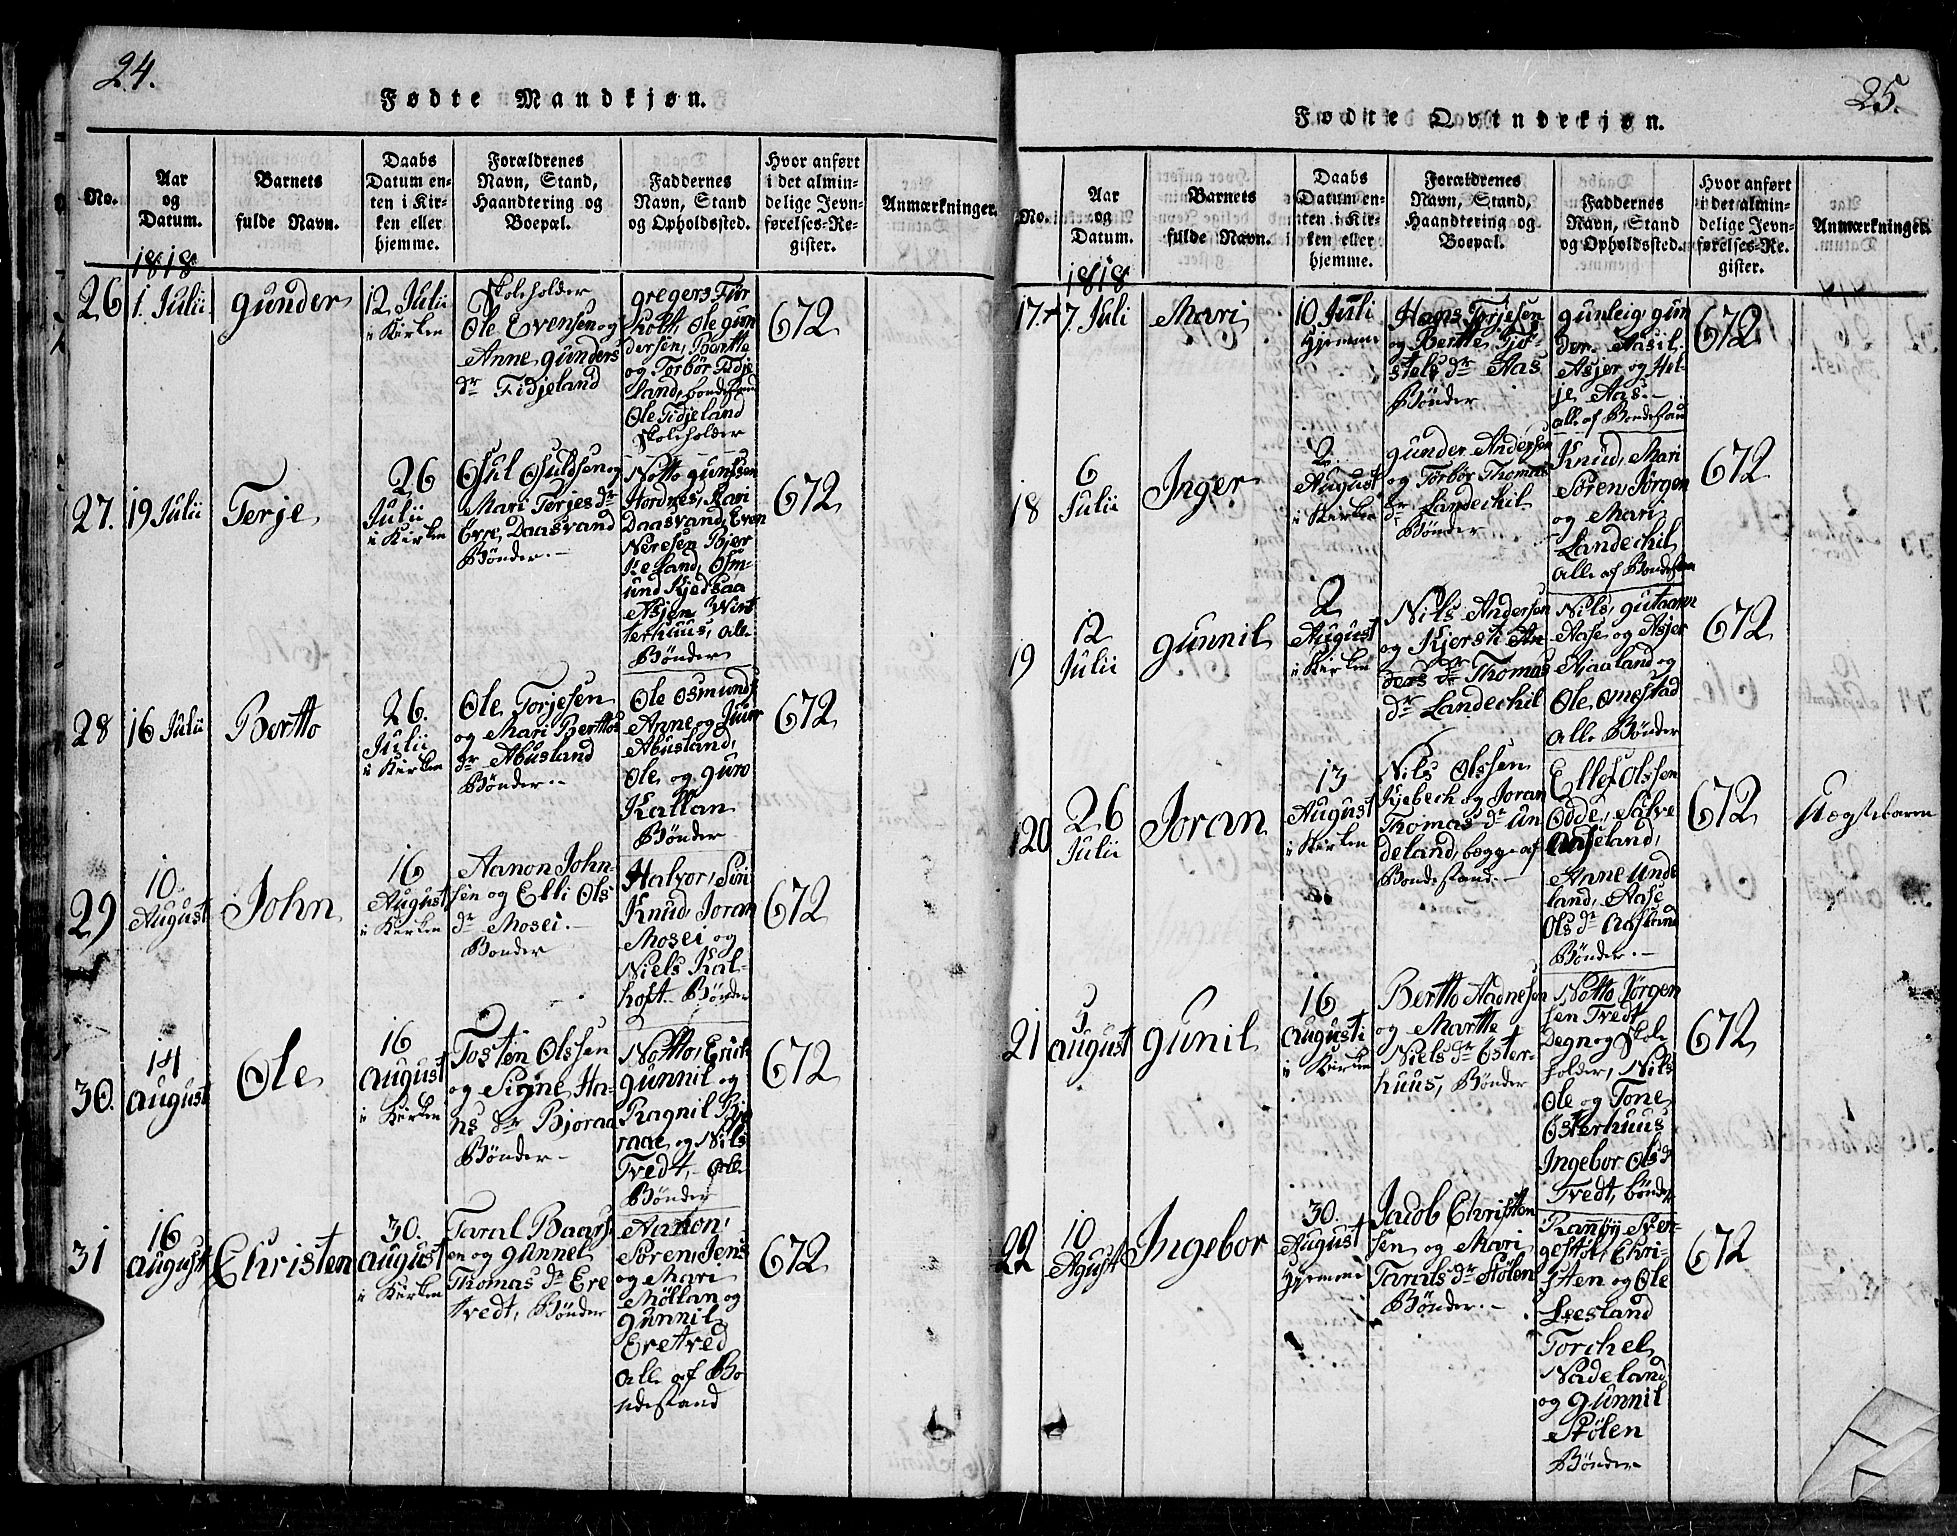 24.
Fødte Mandkjøn.
No.
Aar
og
Datum.
Barnets
fulde Navn.
Daabs
Datum en-
ten i Kir-
ken eller
hjemme.
Forældrenes
Navn, Stand,
Haandtering og
Boepæl.
Faddernes
Navn, Stand
og Opholdssted.
Hvor anført
i det almin-
delige Jevn-
førelses-Re-
gister.
Anmærkninger.
1818
26
1. Julii
gunder
12 Julii
i Kirken
Skoleholder
Ole Evensen og
Anne gunders
dr Fidjeland
gregers Fiør
holt, Ole gun
dersen, Berthe
og Torbør Fidje
land, bondestand
Ole Fidjeland
Skoleholder
672
27.
19 Julii
Terje
26
Julii
i Kirken
Osul Osuldsen og
Mari Terjes dr
Daasvand
Bønder.-
Notto gunssen
Hordnes, Kari
Daasvand, Even
Neresen Bjer
keland, Osm-
und Kjedsaa
Asjer Wint
terhuus, alle
Bønder
672
28
16 Julii
Bertto
26.
Julii
i Kirken
Ole Torjesen
og Mari Berttos
dr Abusland
Bønder.-
Ole Osmunds
Anne og Juur
Abusland,
Ole og guro
Kallan
Bønder
672
29
10
August
John
16
August
i Kirken
Aanon John-
sen og Elli Ols
dr Mosei.-
Bonder
Halvor, Siri
Knud Joran
Mosei og
Niels Kal-
hoft Bønder
672
30.
14
august
Ole
16
august
i Kirken
Tosten Olssen
og Signe Ha-
ns dr Bjoraa
Bønder-
Notto, Erich
gunnil og
Ragnil Bjo
raae og Nils
Tvedt, Alle
Bønder
672
31
16
august
Christen
30.
august
i Kirken
Taral Baars
en og gunnel
Thomas dr Ere
tvedt, Bønder
Aanon,
Søren, Jens
og Mari
Møllan og
gunnil
Eretved
alle af Bo
ndestand
672
25.
Fødte Qvindekjøn.
No.
Aar
og
Datum.
Barnets
fulde Navn.
Daabs
Datum en-
ten i Kir-
ken eller
hjemme.
Forældrenes
Navn, Stand,
Haandtering og
Boepæl.
Faddernes
Navn, Stand
og Opholdssted.
Hvor anført
i det almin-
delige Jevn-
førelses-Re-
gister.
Anmærkninger.
1818
17.
7 Juli
Mari
10 Juli
Hjemme
Hans Torjesen
og Berthe Tjø-
stels dr Aas
Bønder
gunleig, gun
der, Aasil
Asjer og Hel-
je Aas.-
alle af Bondestand
672
18
6
Julii
Inger
2.
August
i Kirken
gunder Andersen
og Torbør Thomas
dr Landechil
Bønder
Knud, Mari
Søren Jørgen
og Mari
Landechil
alle af Bondestan
672
19
12
Julii
gunnil
2
August
i Kirken
Nils Andersen
og Kjersti An-
ders dr Thomas
dr Landechil
Nils, gutaarm
Aase og Asjer
Aaaland og
Ole Omestad
alle Bønder
672
20
26
Julii
Joran
13
August
i Kirken
Nils Olssen
Kjebech og Joran
Thomas dr Un
deland, begge af
Bondestand.-
Ellef Olssen
Odde, Salve
Aaseland,
Anne Unde
land, Aase
Ols dr Aasland
Bønder.-
672
Uægtebarn
21
5
august
gunil
16
augusti
i Kirken
Bertto Aadnesen
og Marthe
Niels dr Øster-
huus, Bønder
Notto Jørgen
sen Tvedt
Degn og Skole
holder, Nils
Ole og Tone
Østerhuus
Ingebor Ols dr
Tvedt, bønder
672
22
10
Agustt
Ingebor
30.
August
Hjemme
Jacob Christen
sen og Mari
Tarals dr Stølen
Bønder.-
Ranøy Sten-
gestøl, Chri-
sten og Ole
Leesland
Torchel
Nadeland
og gunnil
Stølen
Bønder
672